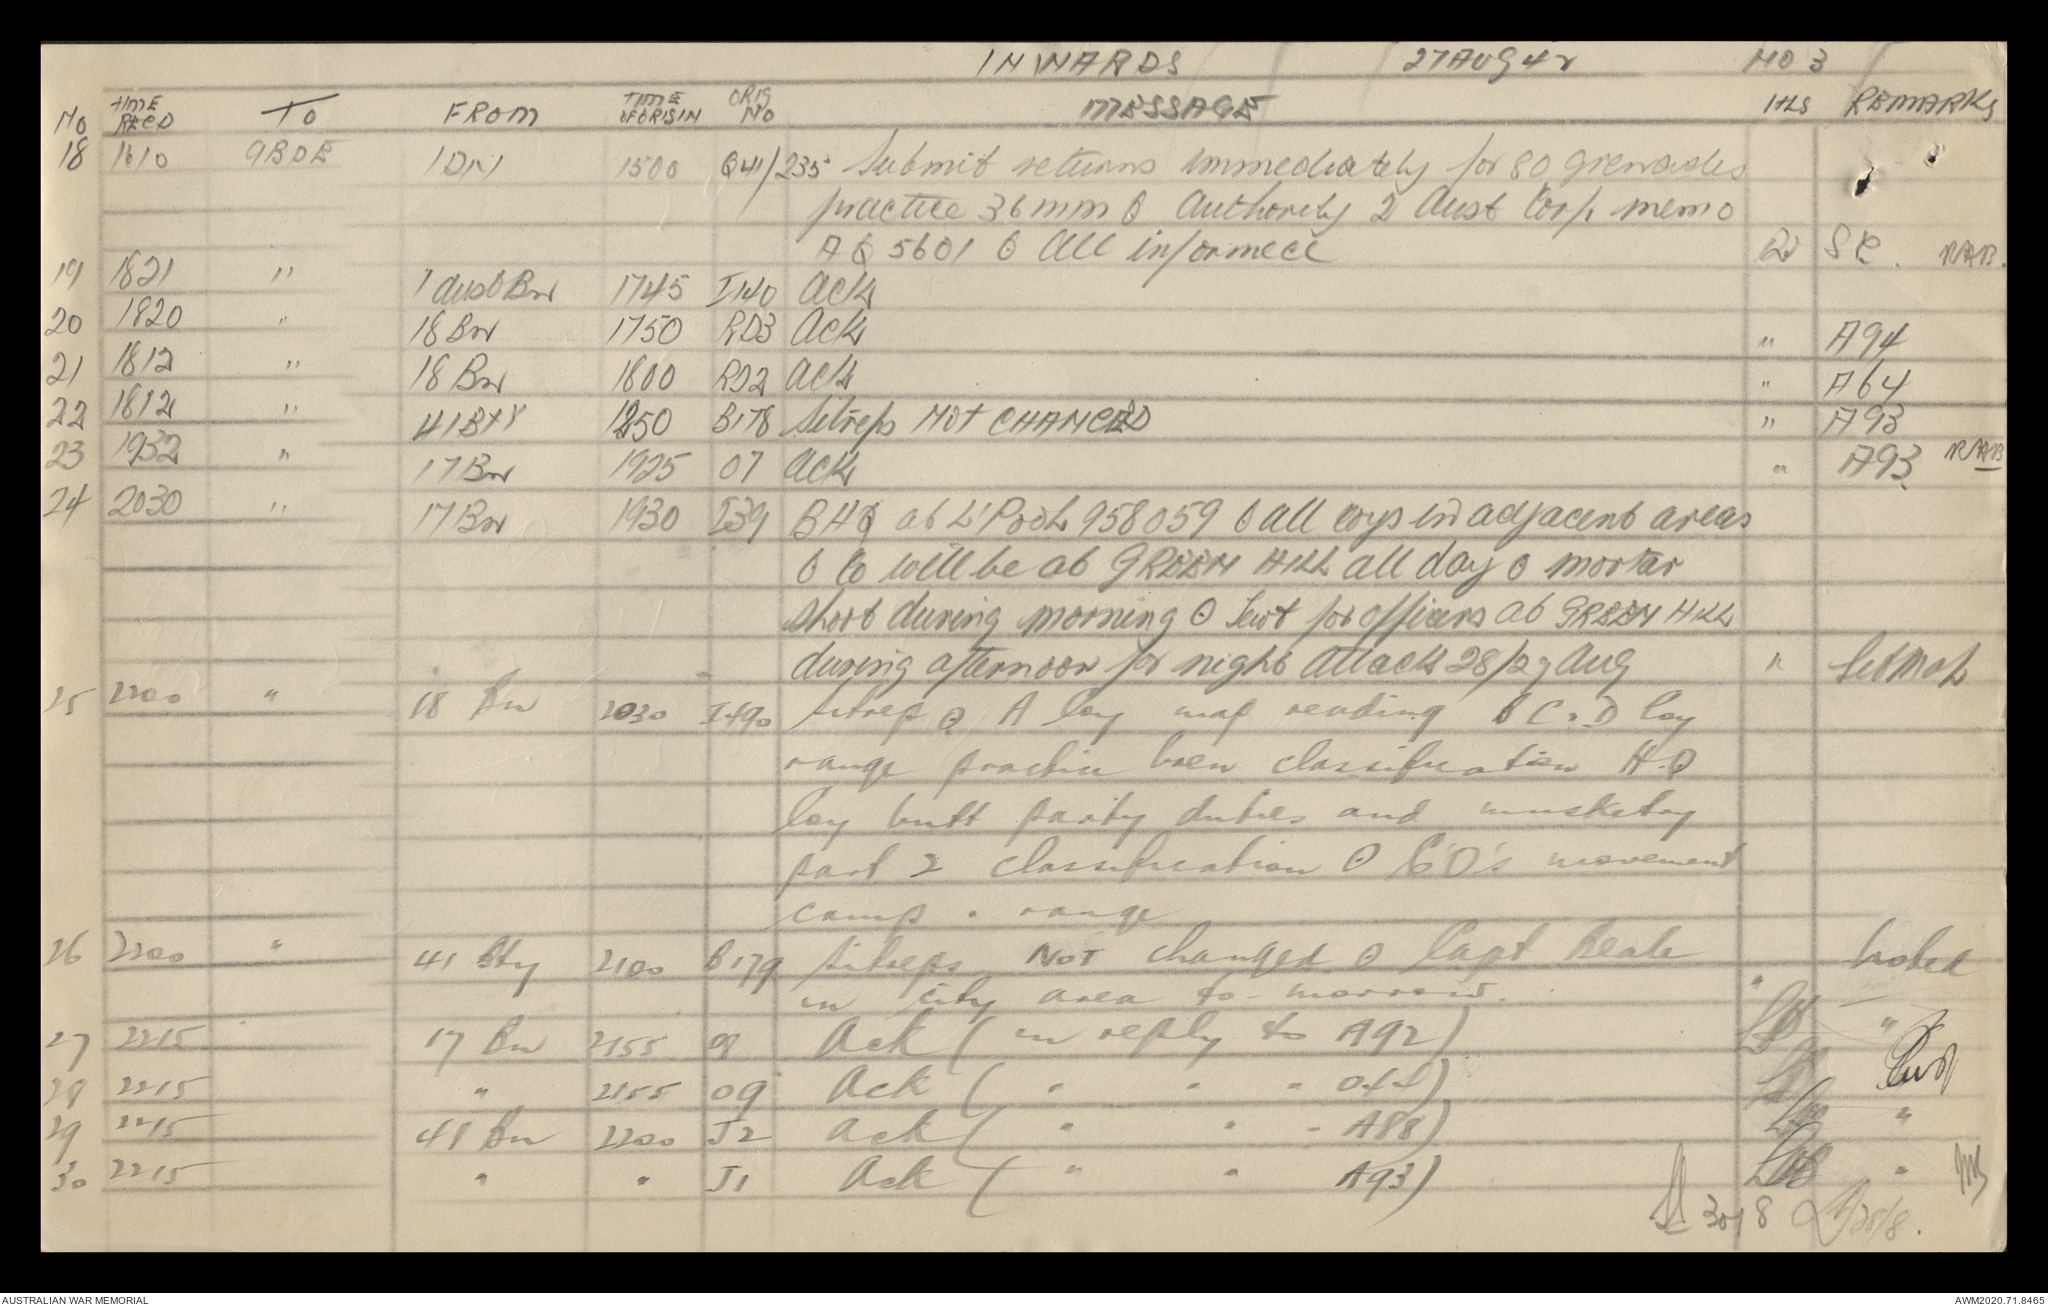 INWARDS 27 AUG 42 NO 3
No TIME RECD TO FROM TIME OF ORIGIN ORIG NO MESSAGE ITLS REMARKS
18 1610 9BDE 1 DIV 1500 Q41/235 Submit returns immediately for 80 grenades
practice 36 mm O Authority 2 Aust Corps memo
AQ 5601 O All informed SC. RAB.
19 1821 " 1 Aust Bn 1745 I140 Ack
20 1820 " 18 Bn 1750 RD3 Ack " A94
21 1812 " 18 Bn 1800 RD2 Ack " A64
22 1812 " 41 Bty 1250 B178 Sitreps NOT CHANGED " A93
23 1932 " 17 Bn 1925 O7 Ack " A93 RAB
24 2030 " 17 Bn 1930 I39 BHQ at L'POOL 958059 O all coys in adjacent areas
O Co will be at GREEN HILL all day O mortar
shoot during morning O Tewt for officers at GREEN HILL
during afternoon for night attack 28/29 Aug "
25 2200 " 18 Bn 2030 I490 Sitrep O A Coy map reading O C & D Coy
range practice bren classification H.Q
Coy butt party duties and musketry
part 2 classification O CO's movement
camp & range
26 2200 " 41 Bty 2100 B179 Sitreps NOT changed O Capt Beale
in city area to-morrow. " noted
27 2215 17 Bn 2155 O8 Ack (in reply to A92) "
28 2215 " 2155 O9 Ack ( " " " O44)
29 2215 41 Bn 2200 J2 Ack ( " " " A88) "
30 2215 " " J1 Ack ( " " A93) "
30/8 28/8.
AUSTRALIAN WAR MEMORIAL AWM2020.71.8465